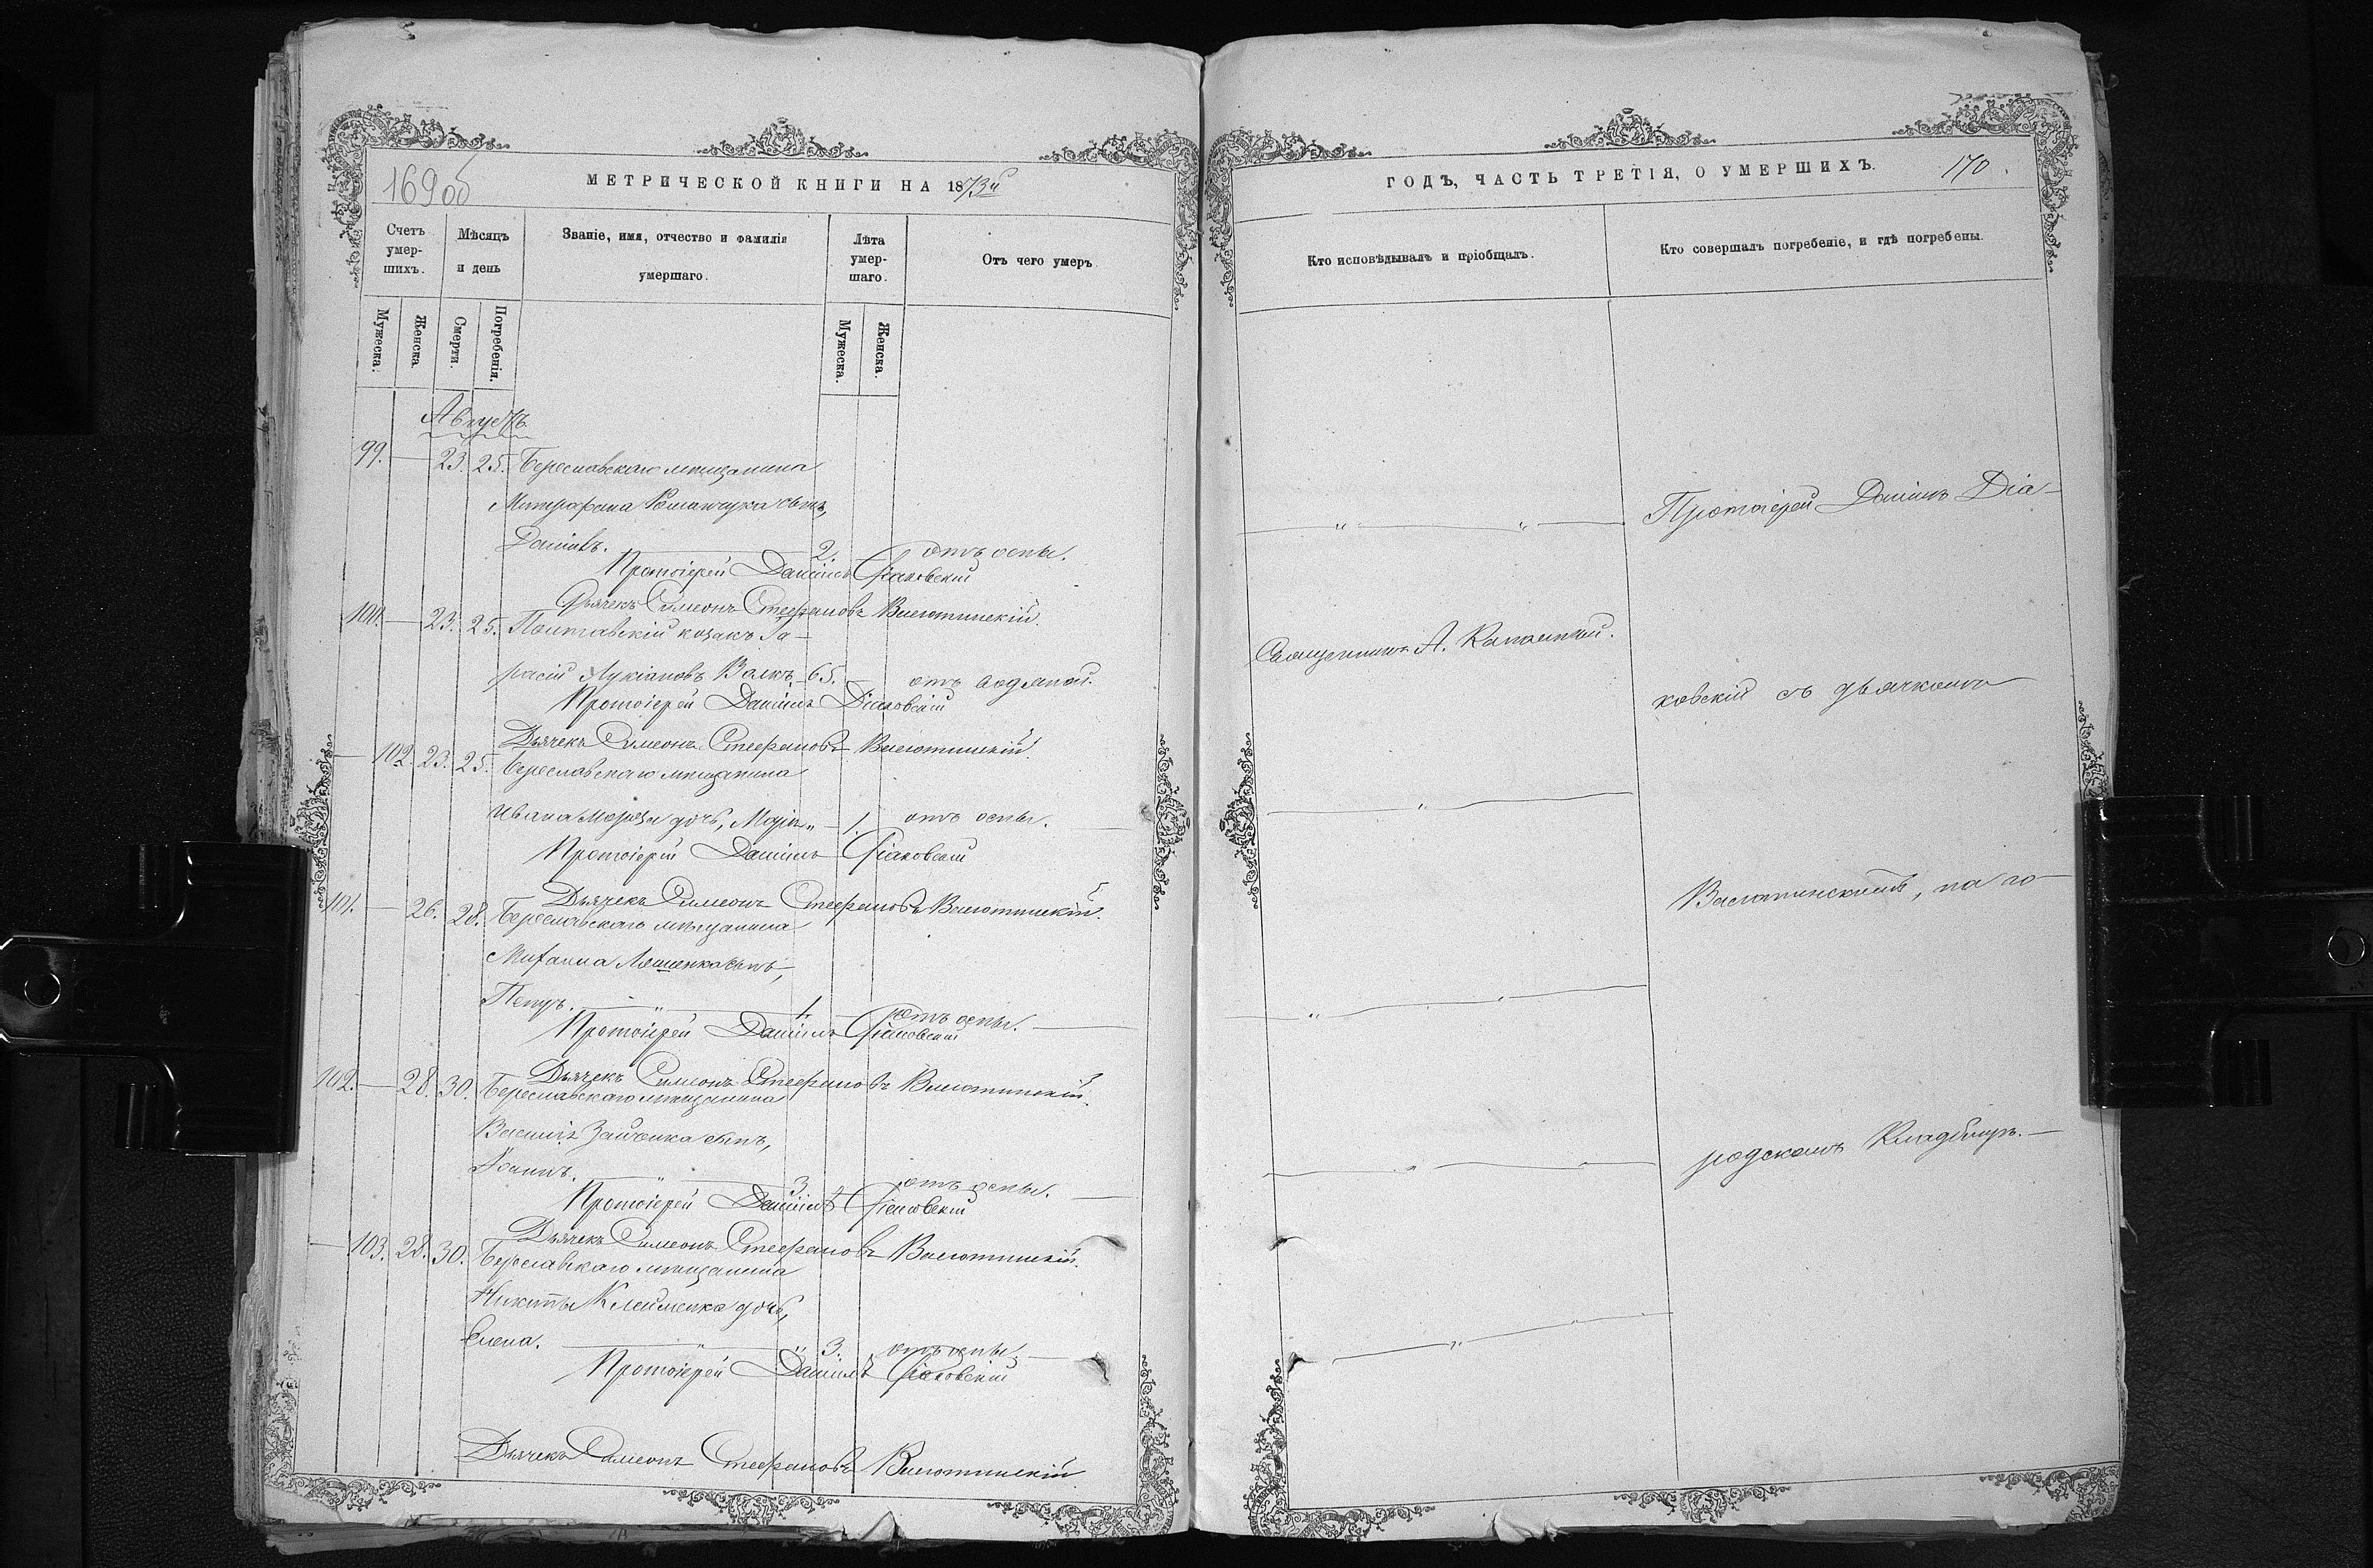 169 об
МЕТРИЧЕСКОЙ КНИГИ НА 1873й
Счетъ умер-шихъ.
Мѣсяцъ и день
Званіе, имя, отчество и фамилія умершаго.
Лѣта умер-шаго.
Отъ чего умеръ
Мужеска.
Женска
Смерти.
Погребенія.
Мужеска.
Женска.
Августъ
99. — 23. 25. Береславскаго мѣщанина
Митрофана сынъ,
Даніилъ. 2. отъ оспы.
Протоіерей Даніилъ Діаковскій
Дьячекъ Симеонъ Стефановъ
100. — 23. 25. Полтавскій козакъ Га-
расій Лукіановъ Валкъ 65. отъ водяной.
Протоіерей Даніилъ Діаковскій
Дьячекъ Симеонъ Стефановъ
— 102. 23. 25. Береславскаго мѣщанина
Ивана дочь, Марія „ — 1. отъ оспы.
Протоіерей Даніилъ Діаковскій
Дьячекъ Симеонъ Стефановъ
101. — 26. 28. Береславскаго мѣщанина
Михаила сынъ,
Петръ. „ 1. отъ оспы.
Протоіерей Даніилъ Діаковскій
Дьячекъ Симеонъ Стефановъ
102. — 28. 30. Береславскаго мѣщанина
Василія сынъ,
Іоаннъ. „ 3. отъ оспы.
Протоіерей Даніилъ Діаковскій
Дьячекъ Симеонъ Стефановъ
— 103. 28. 30. Береславскаго мѣщанина
Никиты Клеименка дочь,
Елена. „ „ 3. отъ оспы.
Протоіерей Даніилъ Діаковскій
Дьячекъ Симеонъ Стефановъ
ГОДЪ, ЧАСТЬ ТРЕТІЯ, О УМЕРШИХЪ.
170.
Кто исповѣдывалъ и пріобщалъ.
Кто совершалъ погребеніе, и гдѣ погребены.
Протоіерей Даніилъ Діа-
Священникъ А.
ковскій съ дьячкомъ
на го-
родскомъ Кладбищѣ.